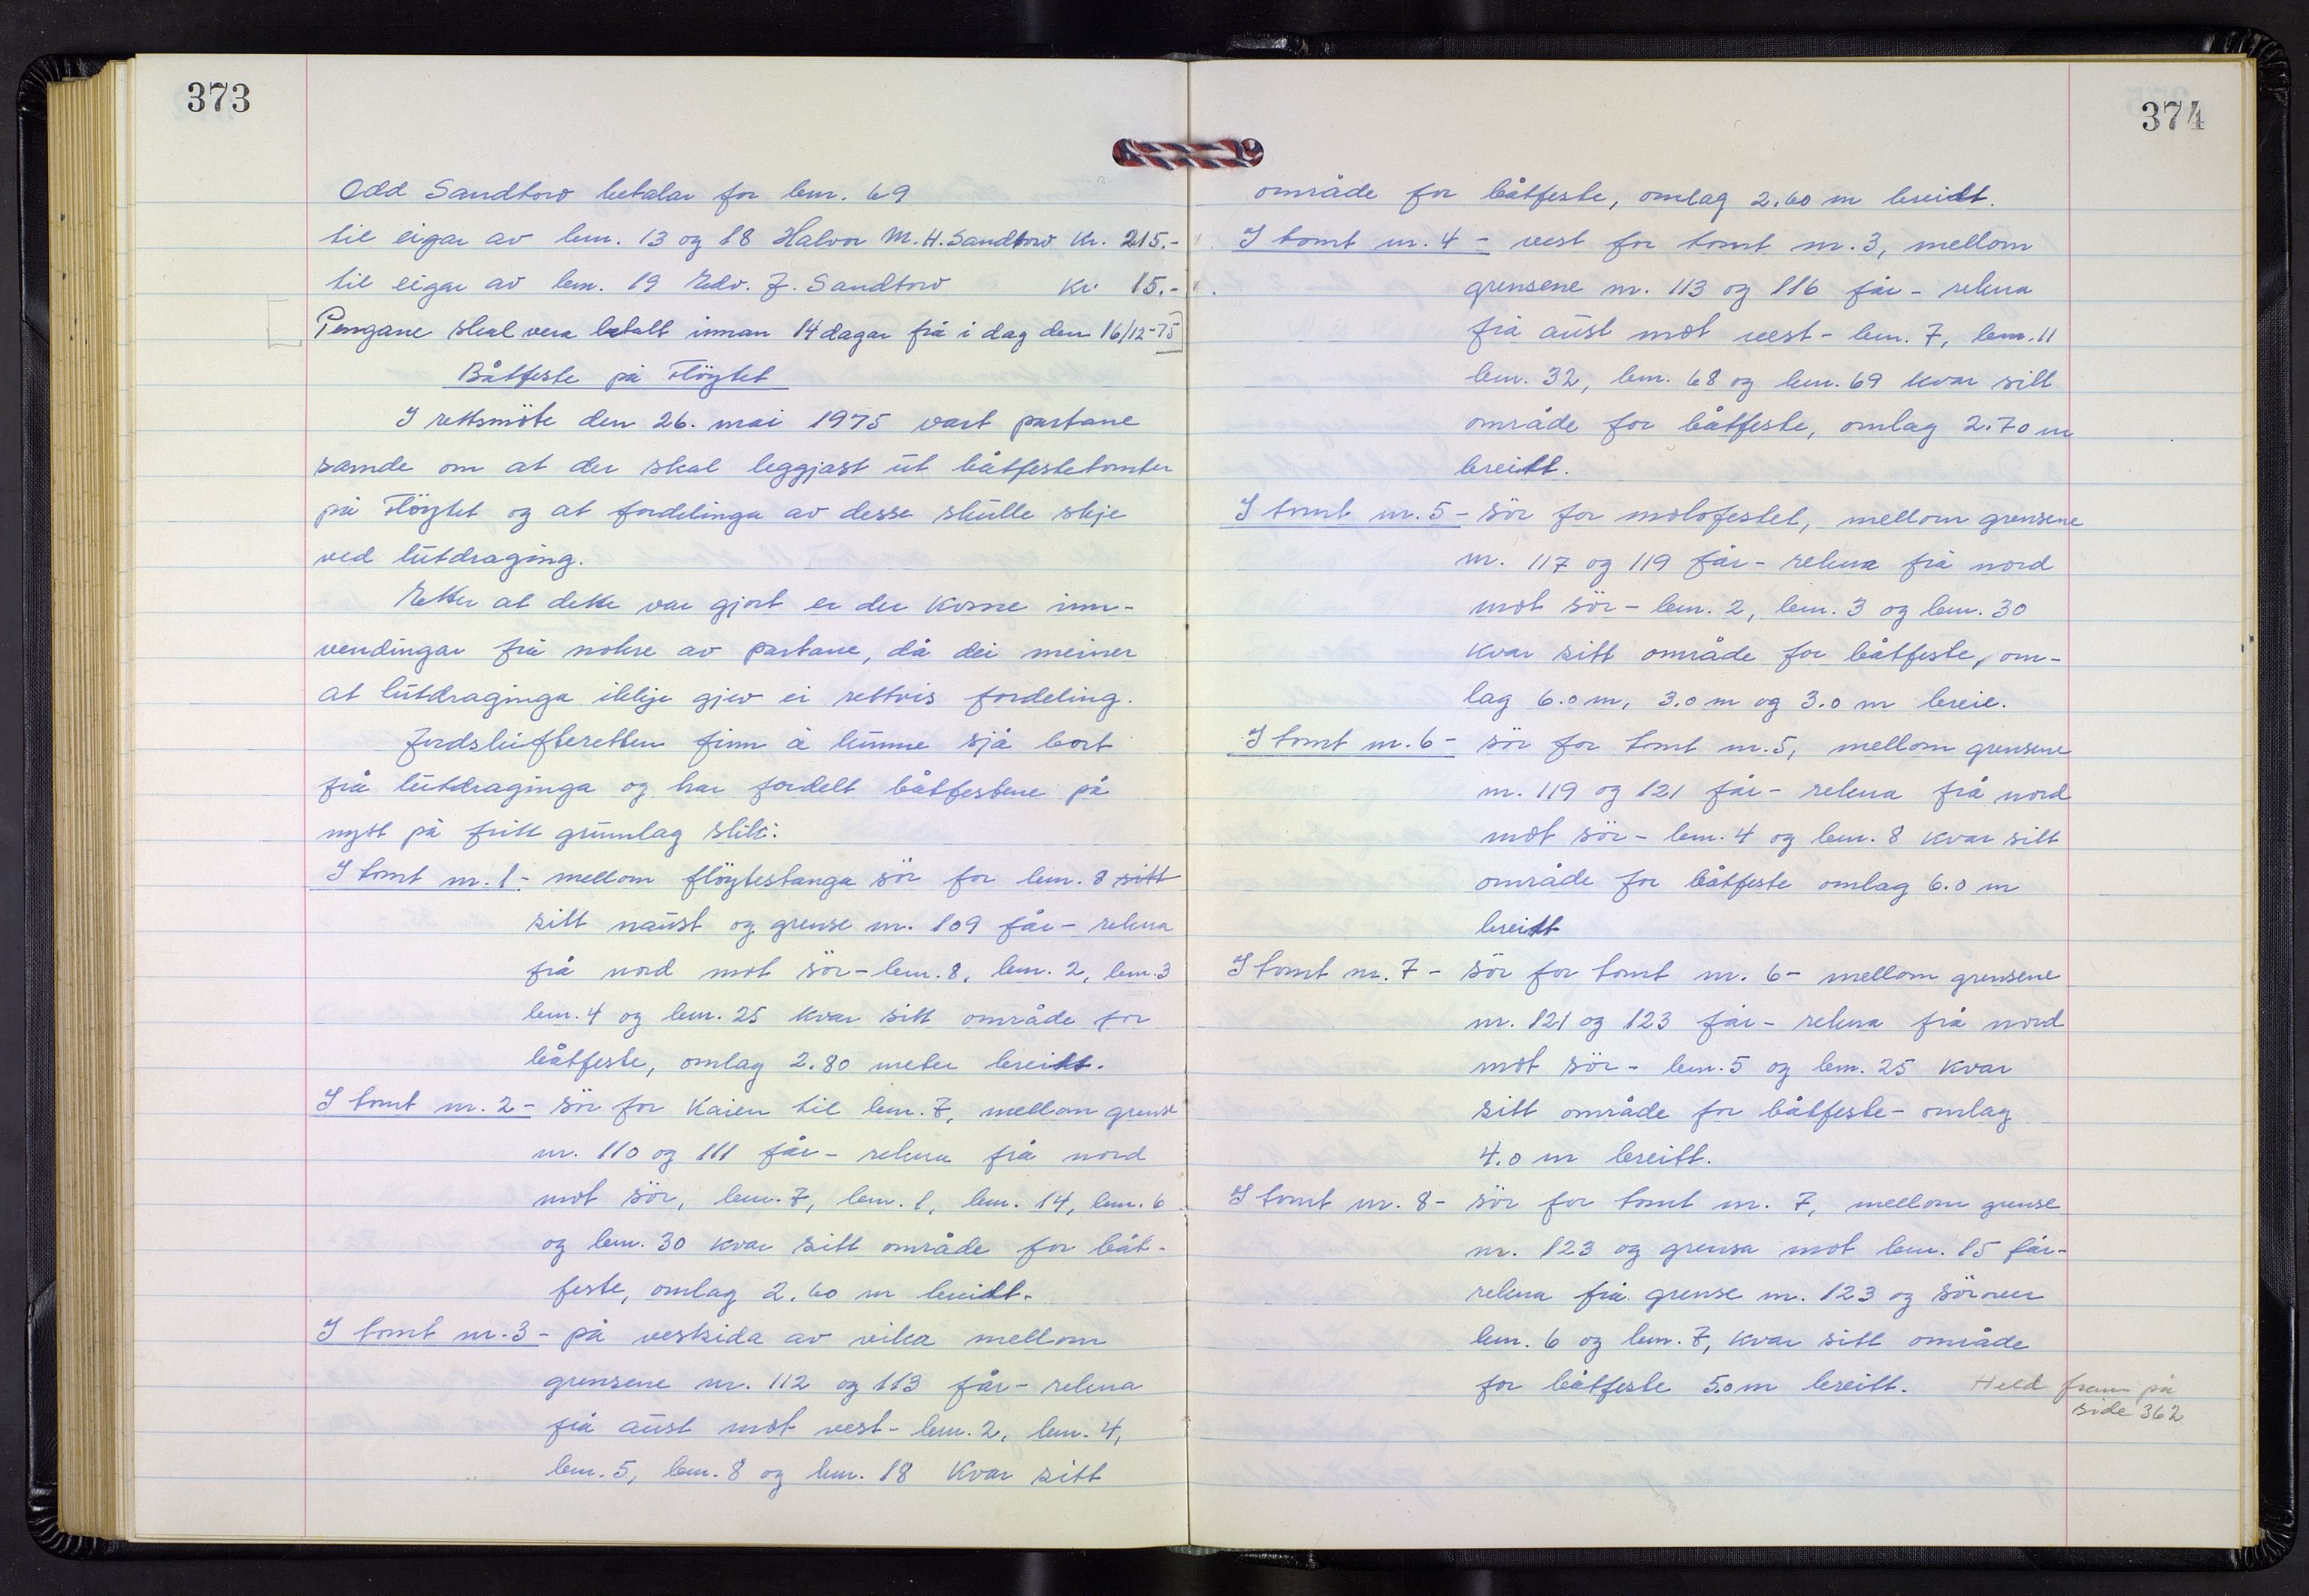 373
Odd Sandtorv betalar for bnr. 69
til eigar av bnr. 13 og 18 Halvor M.H. Sandtorv Kr. 215.-
til eigar av bnr. 19 Edv. J. Sandtorv Kr. 15.-
Pengane skal vera betalt innan 14 dagar frå i dag den 16/12-75
Båtfeste på Flöytet
I rettsmöte den 26. mai 1975 vart partane
samde om at der skal leggjast ut båtfestetomter
på Flöytet og at fordelinga av desse skulle skje
ved lutdraging.
Etter at dette var gjort er der kome inn-
vendingar frå nokre av partane, då dei meiner
at lutdraginga ikkje gjev ei rettvis fordeling.
Jordskifteretten finn å kunne sjå bort
frå lutdraginga og har fordelt båtfestene på
nytt på fritt grunnlag slik:
I tomt nr. 1 - mellom flöytestanga sör for bnr. 8 sitt
sitt naust og grense nr. 109 får - rekna
frå nord mot sör - bnr. 8, bnr. 2, bnr. 3
bnr. 4 og bnr. 25 kvar sitt område for
båtfeste, omlag 2.80 meter breitt.
I tomt nr. 2 - sör for Kaien til bnr. 7, mellom grense
nr. 110 og 111 får - rekna frå nord
mot sör, bnr. 7, bnr. 1, bnr. 14, bnr. 6
og bnr. 30 kvar sitt område for båt-
feste, omlag 2.60 m breitt.
I tomt nr. 3 - på vestsida av vika mellom
grensene nr. 112 og 113 får - rekna
frå aust mot vest - bnr. 2, bnr. 4,
bnr. 5, bnr. 8 og bnr. 18 Kvar sitt
374
område for båtfeste, omlag 2.60 m breitt.
I tomt nr. 4 - vest for tomt nr. 3, mellom
grensene nr. 113 og 116 får - rekna
frå aust mot vest - bnr. 7, bnr. 11
bnr. 32, bnr. 68 og bnr. 69 kvar sitt
område for båtfeste, omlag 2.70 m
breitt.
I tomt nr. 5 - sör for molofestet, mellom grensene
nr. 117 og 119 får - rekna frå nord
mot sör - bnr. 2, bnr. 3 og bnr. 30
kvar sitt område for båtfeste, om-
lag 6.0 m, 3.0 m og 3.0 m breie.
I tomt nr. 6 - sör for tomt nr. 5, mellom grensene
nr. 119 og 121 får - rekna frå nord
mot sör - bnr. 4 og bnr. 8 kvar sitt
område for båtfeste omlag 6.0 m
breitt
I tomt nr. 7 - sör for tomt nr. 6 - mellom grensene
nr. 121 og 123 får - rekna frå nord
mot sör - bnr. 5 og bnr. 25 kvar
sitt område for båtfeste - omlag
4.0 m breitt.
I tomt nr. 8 - sör for tomt nr. 7, mellom grense
nr. 123 og grensa mot bnr. 15 får -
rekna frå grense nr. 123 og sörover
bnr. 6 og bnr. 7, kvar sitt område
for båtfeste 5.0 m breitt. Held fram på
side 362